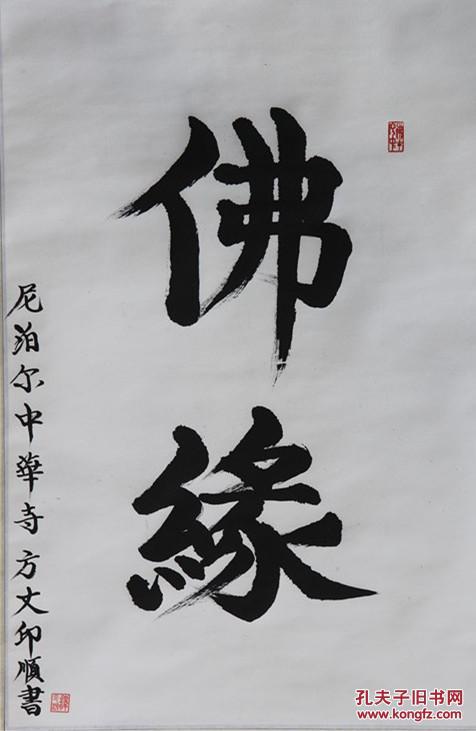 佛緣
尼泊尔中華寺方丈印順書
孔夫子旧书网
www.kongfz.com